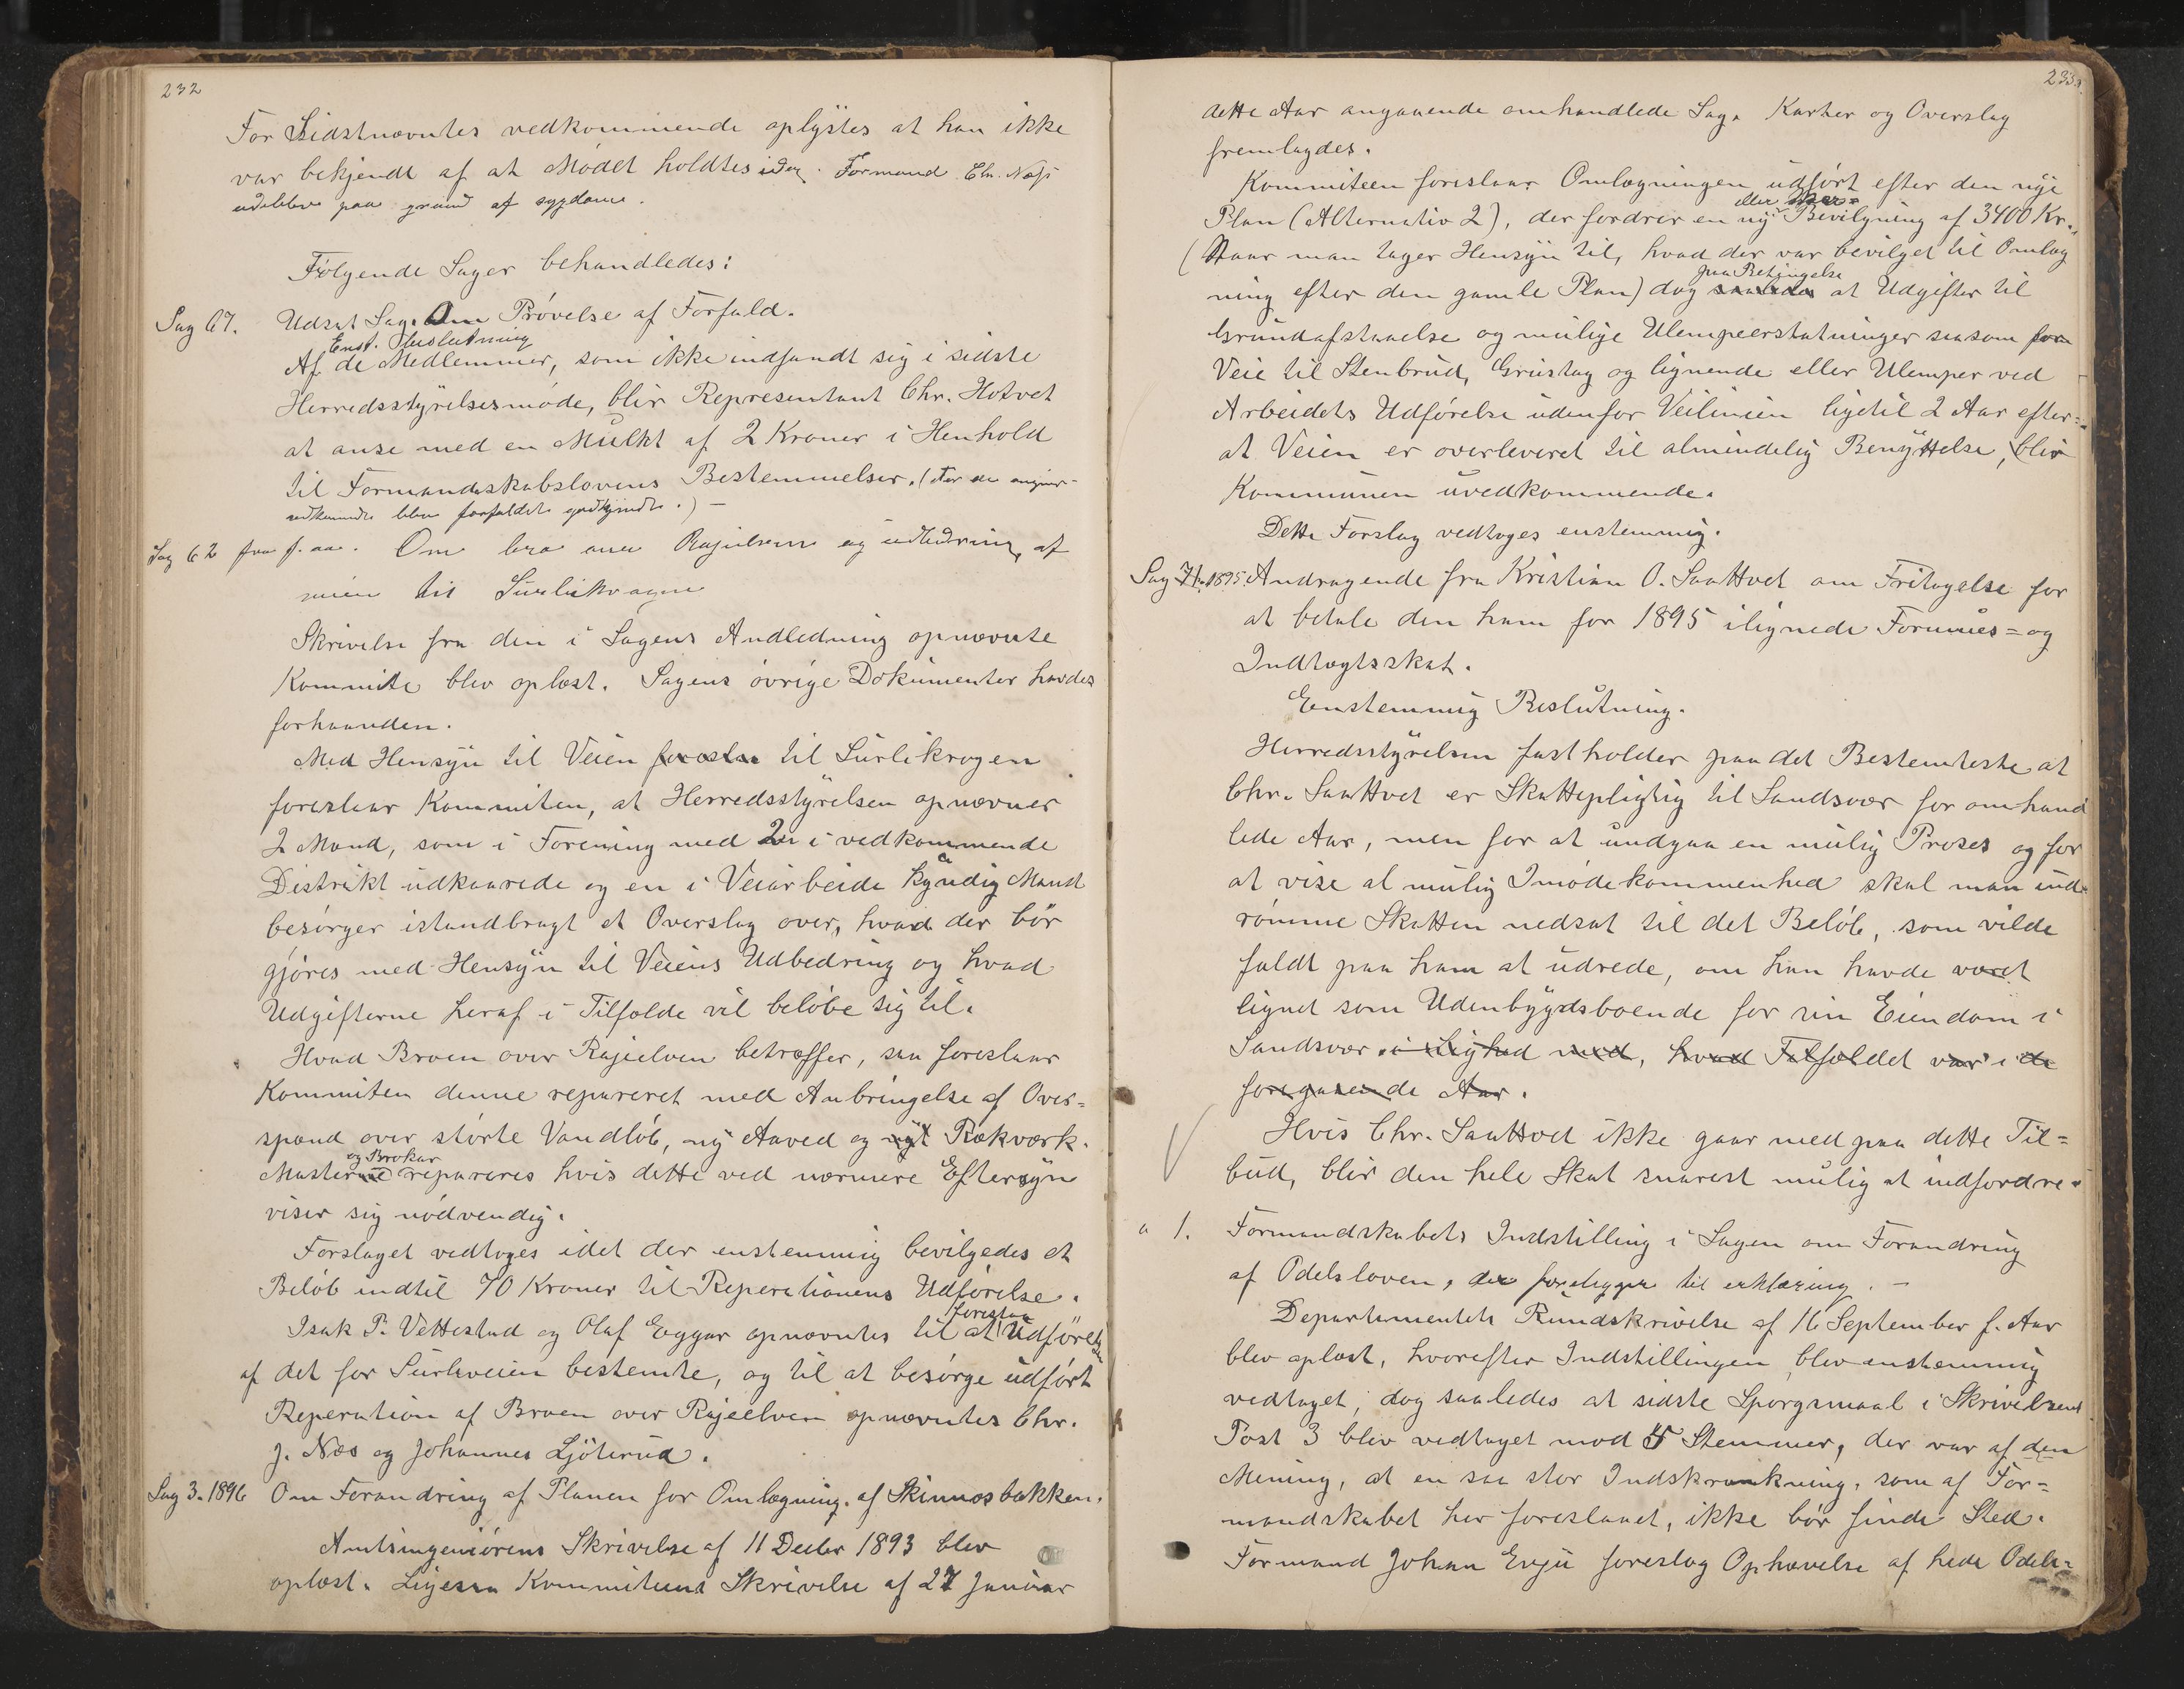 232
For Sidstnævntes vedkommende oplystes at han ikke
var bekjendt af at Mødet holdtes idag. Formand Chr. Næss
udeblev paa grund af sygdom.
Følgende Sager behandledes:
Sag 67. Udsat Sag. Om Prøvelse af Forfald.
Enst. Beslutning
Af de Medlemmer, som ikke indfandt sig i sidste
Herredsstyrelsesmøde, blir Representant Chr. Hotvet
at anse med en Mulkt af 2 Kroner i Henhold
til Formandskabslovens Bestemmelser. (For de øvriges
vedkommende blev forfaldet godkjendt.) —
Sag 62 fra f. aa. Om bro over Rajeelven og udbedring af
veien til Surlikrogen
Skrivelse fra den i Sagens Andledning opnævnte
Kommite blev oplæst. Sagens øvrige Dokumenter havdes
forhaanden.
Med Hensyn til Veien foreslaa til Surlikrogen
foreslaar Kommiten, at Herredsstyrelsen opnævner
2 Mand, som i Forening med 2 i vedkommende
Distrikt udkaarede og en i Veiarbeide kyndig Mand
besørger istandbragt et Overslag over, hvad der bør
gjøres med Hensyn til Veiens Udbedring og hvad
Udgifterne heraf i Tilfælde vil beløbe sig til.
Hvad Broen over Rajeelven betræffer, saa foreslaar
Kommiten denne repareret med Anbringelse af Over=
spænd over størte Vandløb, ny Aaved og nyt Rækværk.
og Brokar
Masterne repareres hvis dette ved nærmere Eftersyn
viser sig nødvendig.
Forslaget vedtoges idet der enstemmig bevilgedes et
Beløb indtil 70 Kroner til Reperationens Udførelse.
forestaa
Isak P. Vettestad og Olaf Eggar opnævntes til at Udførelsen
af det for Surliveien bestemte, og til at besørge udført
Reperation af Broen over Rajeelven opnævntes Chr.
J. Næs og Johannes Ljøterud.
Sag 3. 1896 Om Forandring af Planen for Omlægning af Skinnesbakken.
Amtsingeniørens Skrivelse af 11 Decbr 1893 blev
oplæst. Ligesaa Kommiteens Skrivelse af 27 Januar
233.
dette Aar angaaende omhandlede Sag. Karter og Overslag
fremlagdes.
Kommiteen foreslaar Omlægningen udført efter den nye
eller Mer=
Plan (Alternativ 2), der fordrer en ny Bevilgning af 3400 Kr.,
(Naar man tager Hensyn til, hvad der var bevilget til Omlæg
paa Betingelse
ning efter den gamle Plan) dog saaledes at Udgifter til
Grundafstaaelse og mulige Ulempeerstatninger saasom for
Veie til Stenbrud, Grustag og lignende eller Ulemper ved
Arbeidets Udførelse udenfor Veilinien ligetil 2 Aar efter=
at Veien er overleveret til almindelig Benyttelse, blir
Kommunen uvedkommende.
Dette Forslag vedtoges enstemmig.
Sag 71. 1895. Andragende fra Kristian O. Saattvet om Fritagelse for
at betale den ham for 1895 ilignede Formues= og
Indtægtsskat.
Eenstemmig Beslutning.
Herredsstyrelsen fastholder paa det Bestemteste at
Chr. Saattvet er Skattepligtig til Sandsvær for omhand
lede Aar, men for at undgaa en mulig Proses og for
at vise al mulig Imødekommenhed skal man ind
rømme Skatten nedsat til det Beløb, som vilde
faldt paa ham at udrede, om han havde været
lignet som Udenbygdsboende for sin Eiendom i
Sandsvær i Lighed med, hvad Tilfældet var i de
foregaaende Aar.
Hvis Chr. Saattvet ikke gaar med paa dette Til=
bud, blir den hele Skat snarest mulig at indfordre.
a 1. Formandskabets Indstilling i Sagen om Forandring
af Odelsloven, der foreligger til erklæring. —
Departementets Rundskrivelse af 16 September f. Aar
blev oplæst, hvorefter Indstillingen blev enstemmig
vedtaget, dog saaledes at sidste Spørgsmaal i Skrivelsens
Post 3 blev vedtaget mod 5 Stemmer, der var af den
Mening, at en saa stor Indskrænkning, som af For=
mandskabet her foreslaaet, ikke bør finde Sted.
Formand Johan Evju foreslog Ophævelse af hele Odels=